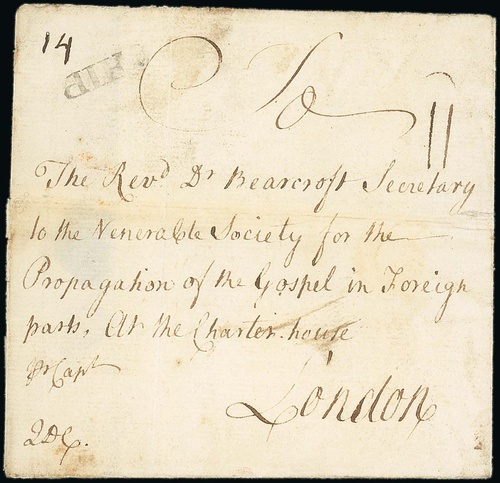 14
SHIP
To
11
The Revd Dr Bearcroft Secretary
to the Venerable Society for the
Propagation of the Gospel in Foreign
parts, At the Charter-house
London
pr Capt
2DC.